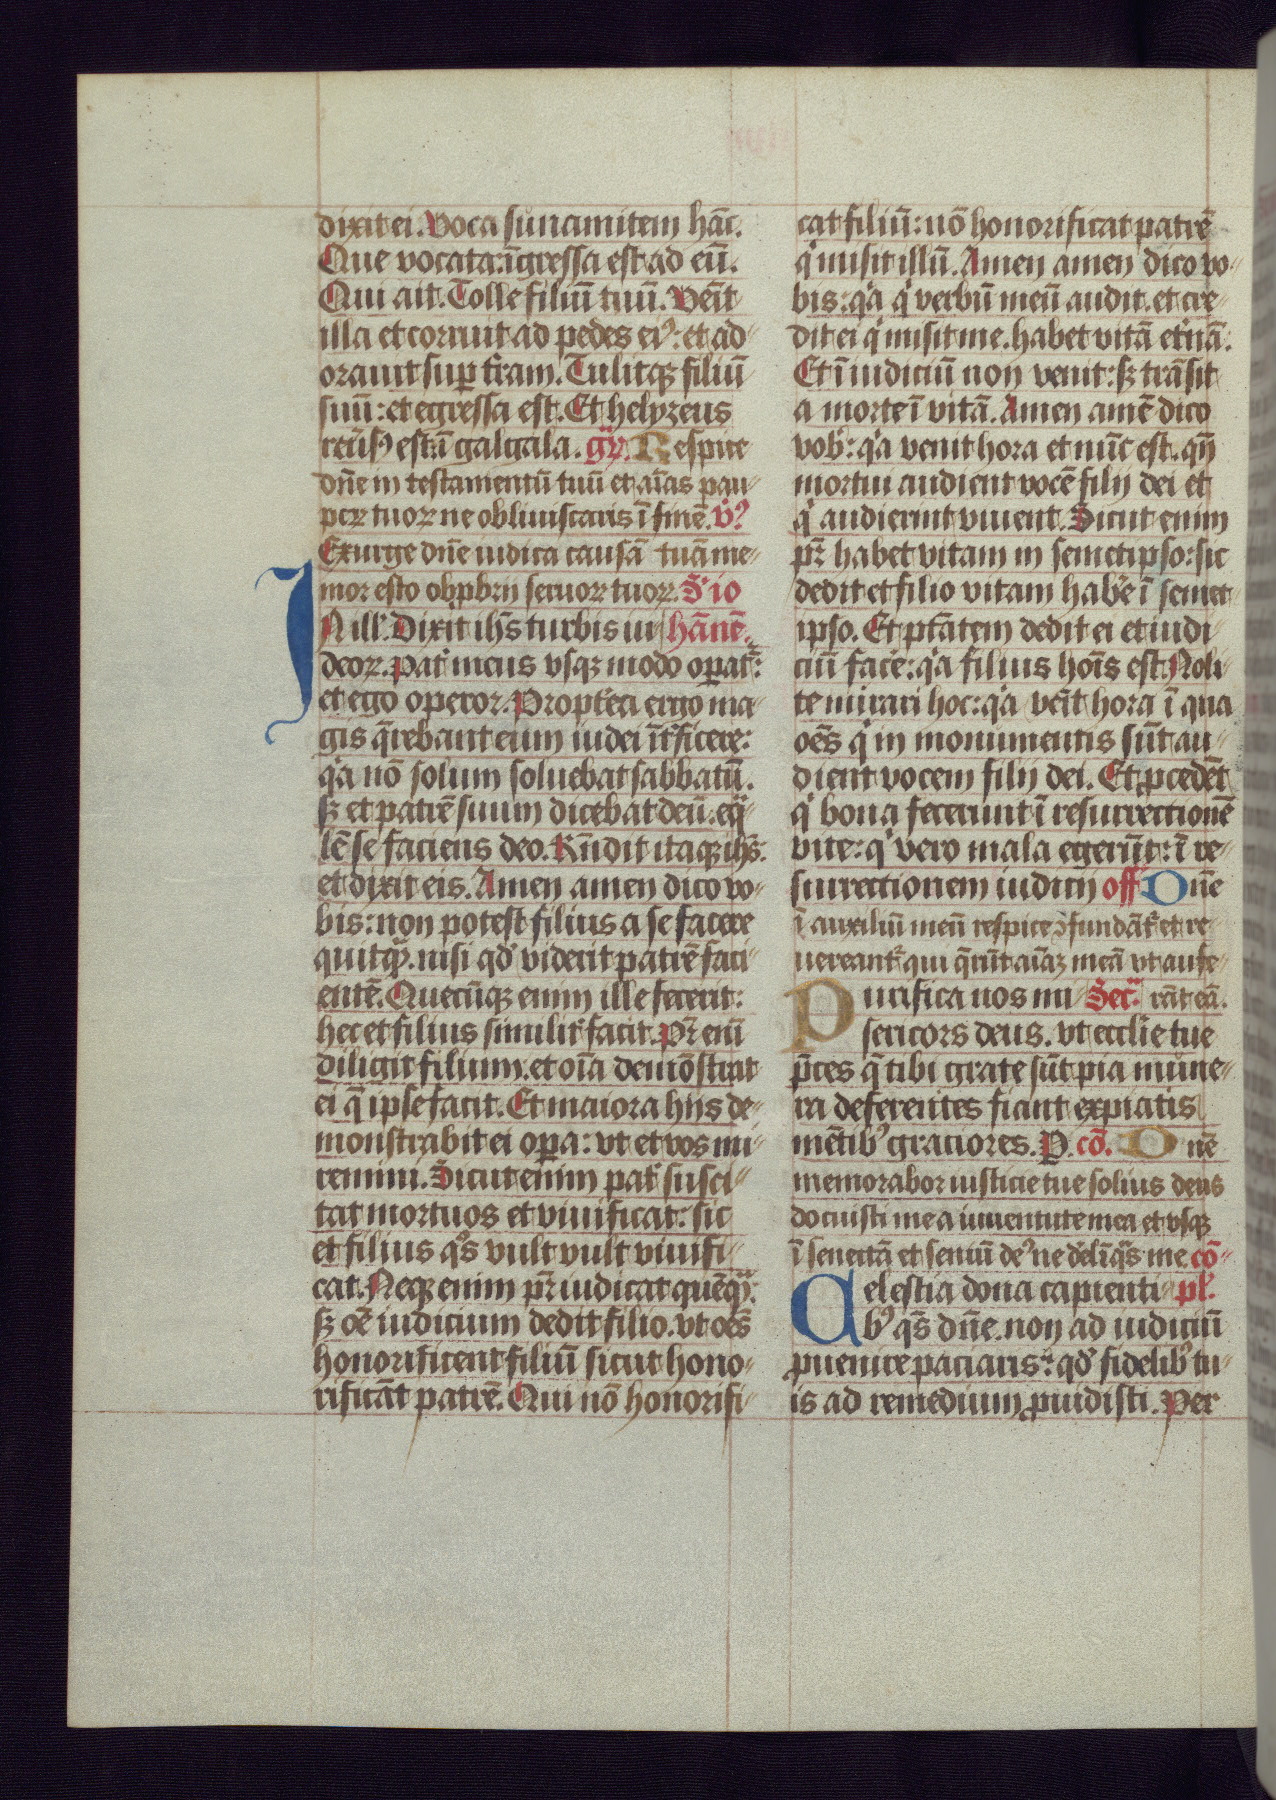 dixit ei. Voca sunamitem hāc.
Que vocata: īgressa est ad eū.
Qui ait. Tolle filiū tuū. Venīt
illa et corruit ad pedes eiꝰ: et ad-
orauit sup t̄ram. Tulitqꝫ filiū
suū: et egressa est. Et helyzeus
reūsꝰ est ī galgala. gͬ. Respice
dn̄e in testamentū tuū et aīas pau-
peꝝ tuoꝝ ne obliuiscaris ī finē. v̊ꝰ
Exurge dn̄e iudica causā tuā me-
mor esto obꝓbrii seruoꝝ tuoꝝ. S. io
IN ill. Dixit ihs̄ turbis iu hānē.
deoꝝ. Pat̾ meus vsqꝫ modo oꝑat᷑:
et ego operor. Propt̾ea ergo ma-
gis q̄rebant eum iudei īt̾ficere:
qͥa nō solum soluebat sabbatū.
sꝫ et patrē suum dicebat deū. eqͣ-
lē se faciens deo. Rn̄dit itaqꝫ ihs̄.
et dixit eis. Amen amen dico vo-
bis: non potest filius a se facere
quitqͣ. nisi qd̾ viderit patrē faci-
entē. Quecūqꝫ enim ille fecerit:
hec et filius similit̾ facit. Pr̄ eni
diligit filium. et oīa demōstrat
ei q̄ ipse facit. Et maiora hiis de-
monstrabit ei oꝑa: vt et vos mi-
remini. Sicut enim pat̾ susci-
tat mortuos et viuificat: sic
et filius qͦs vult vult viuifi-
cat. Neqꝫ enim pr̄ iudicat quēqͣ:
sꝫ oē iudicium dedit filio. vt oēs
honorificent filiū sicut hono-
rificāt patrē. Qui nō honorifi-
cat filiū: nō honorificat patrē
qͥ misit illū. Amen amen dico vo-
bis: qͥa qͥ verbū meū audit. et cre-
dit ei qͥ misit me. habet vitā et̾nā.
Et ī iudiciū non venit: sꝫ trāsit
a morte ī vitā. Amen amē dico
vob̾: qͥa venit hora et nūc est. qn̄
mortui audient vocē filii dei et
qͥ audierint viuent. Sicut enim
pr̄ habet vitam in semetipso: sic
dedit et filio vitam hab̾e ī semet-
ipso. Et ptātem dedit ei et iudi-
ciū fac̾e: qͥa filius hoīs est. Noli-
te mirari hoc: qͥa venīt hora ī qua
oēs qͥ in monumentis sūt au-
dient vocem filii dei. Et ꝓcedēt
qͥ bona fecerunt ī resurrectionē
vite: qͥ vero mala egerūt: ī re-
surrectionem iudicii off Dn̄e
ī auxiliū meū respice ꝯfundāt᷑ et re-
uereant᷑ qui q̄rūt aīaꝫ meā vt aufe-
Purifica nos mi- Secͣ. rāt eā.
sericors deus. vt eccl̄ie tue
p̄ces q̄ tibi grate sūt pia mune-
ra deferentes fiant expiatis
mētibꝰ graciores. P. cō. Dn̄e
memorabor iusticie tue solius deus
docuisti me a iuuentute mea et vsqꝫ
ī senectā et seniū deꝰ ne d̾elīqͣs me cō-
Celestia dona capienti- pl̾.
bꝰ qͣs dn̄e. non ad iudiciū
ꝓuenire paciaris: qd̾ fidelibꝰ tu-
is ad remedium ꝓuidisti. Per